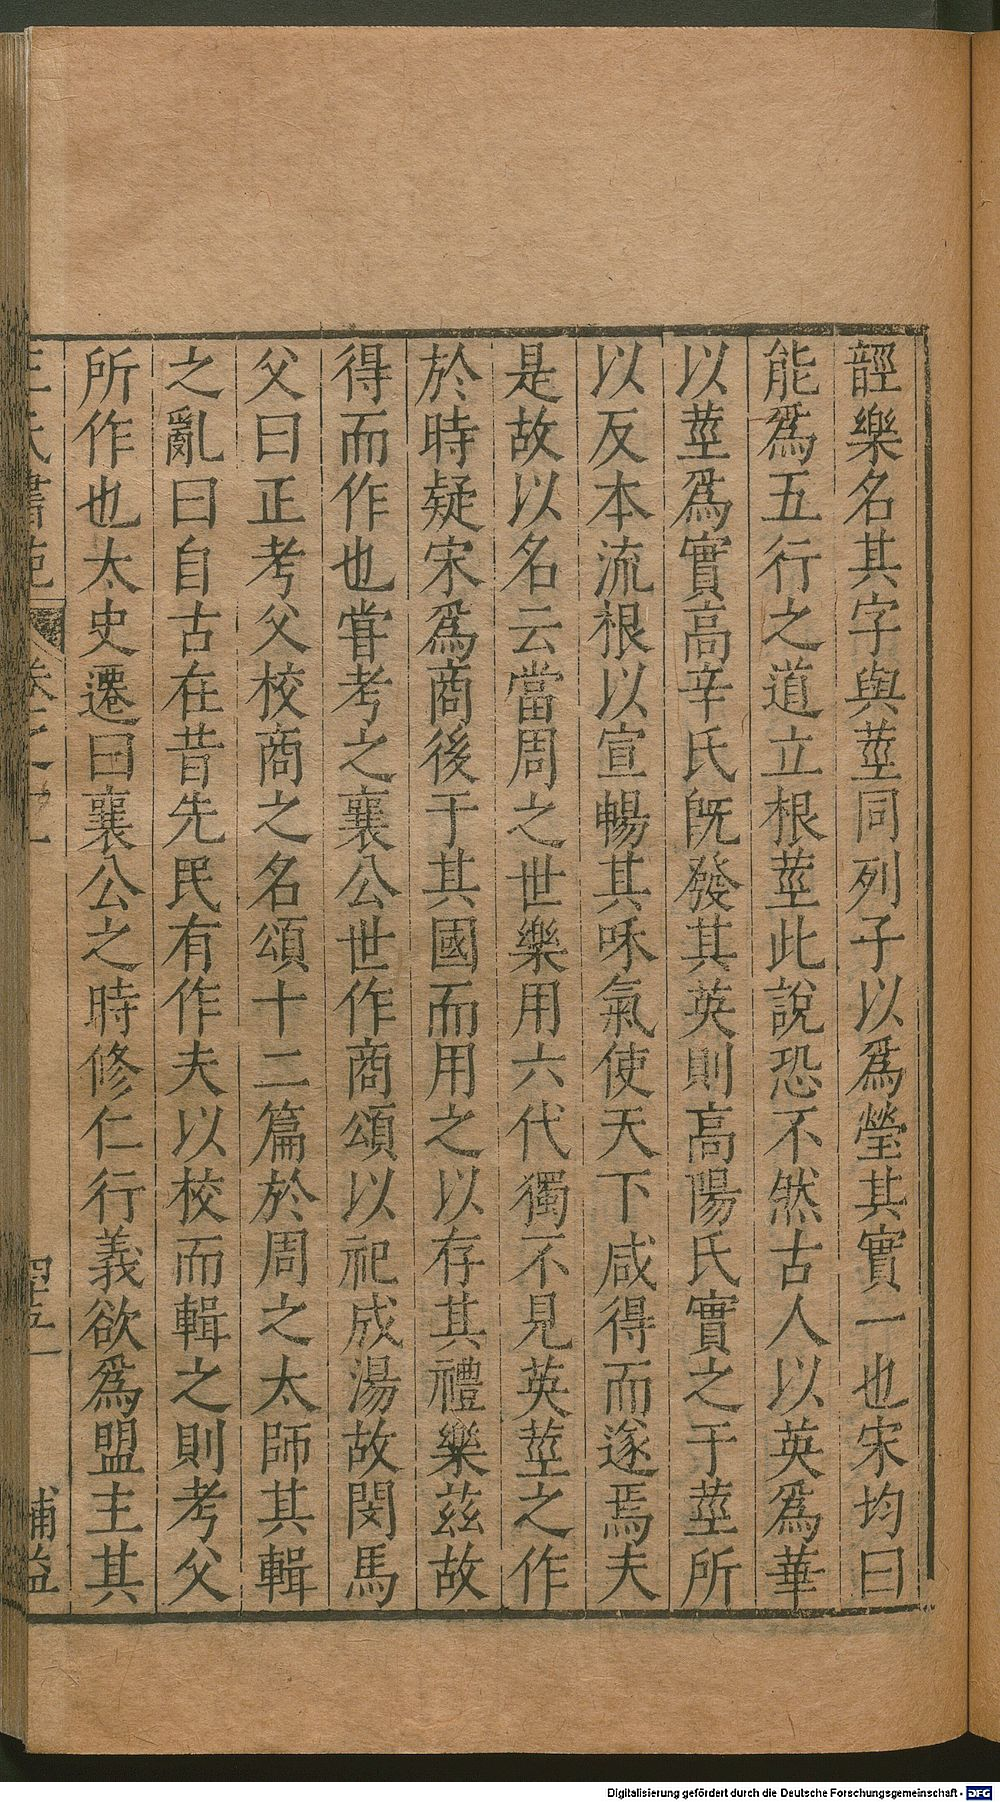 䪫樂名其字與莖同列子以爲瑩其實一也宋均曰
能爲五行之道立根莖此說恐不然古人以英爲華
以莖爲實高辛氏旣發其英則高陽氏實之于莖所
以反本流根以宣暢其咊氣使天下咸得而遂焉夫
是故以名云當周之世樂用六代獨不見英莖之作
於時疑宋爲商後于其國而用之以存其禮樂茲故
得而作也嘗考之襄公世作商頌以祀成湯故閔馬
父曰正考父校商之名頌十二篇於周之太師其輯
之亂曰自古在昔先民有作夫以校而輯之則考父
所作也太史遷曰襄公之時修仁行義欲爲盟主其
王氏書苑 卷之十一 四五一 補益
Digitalisierung gefördert durch die Deutsche Forschungsgemeinschaft - DFG